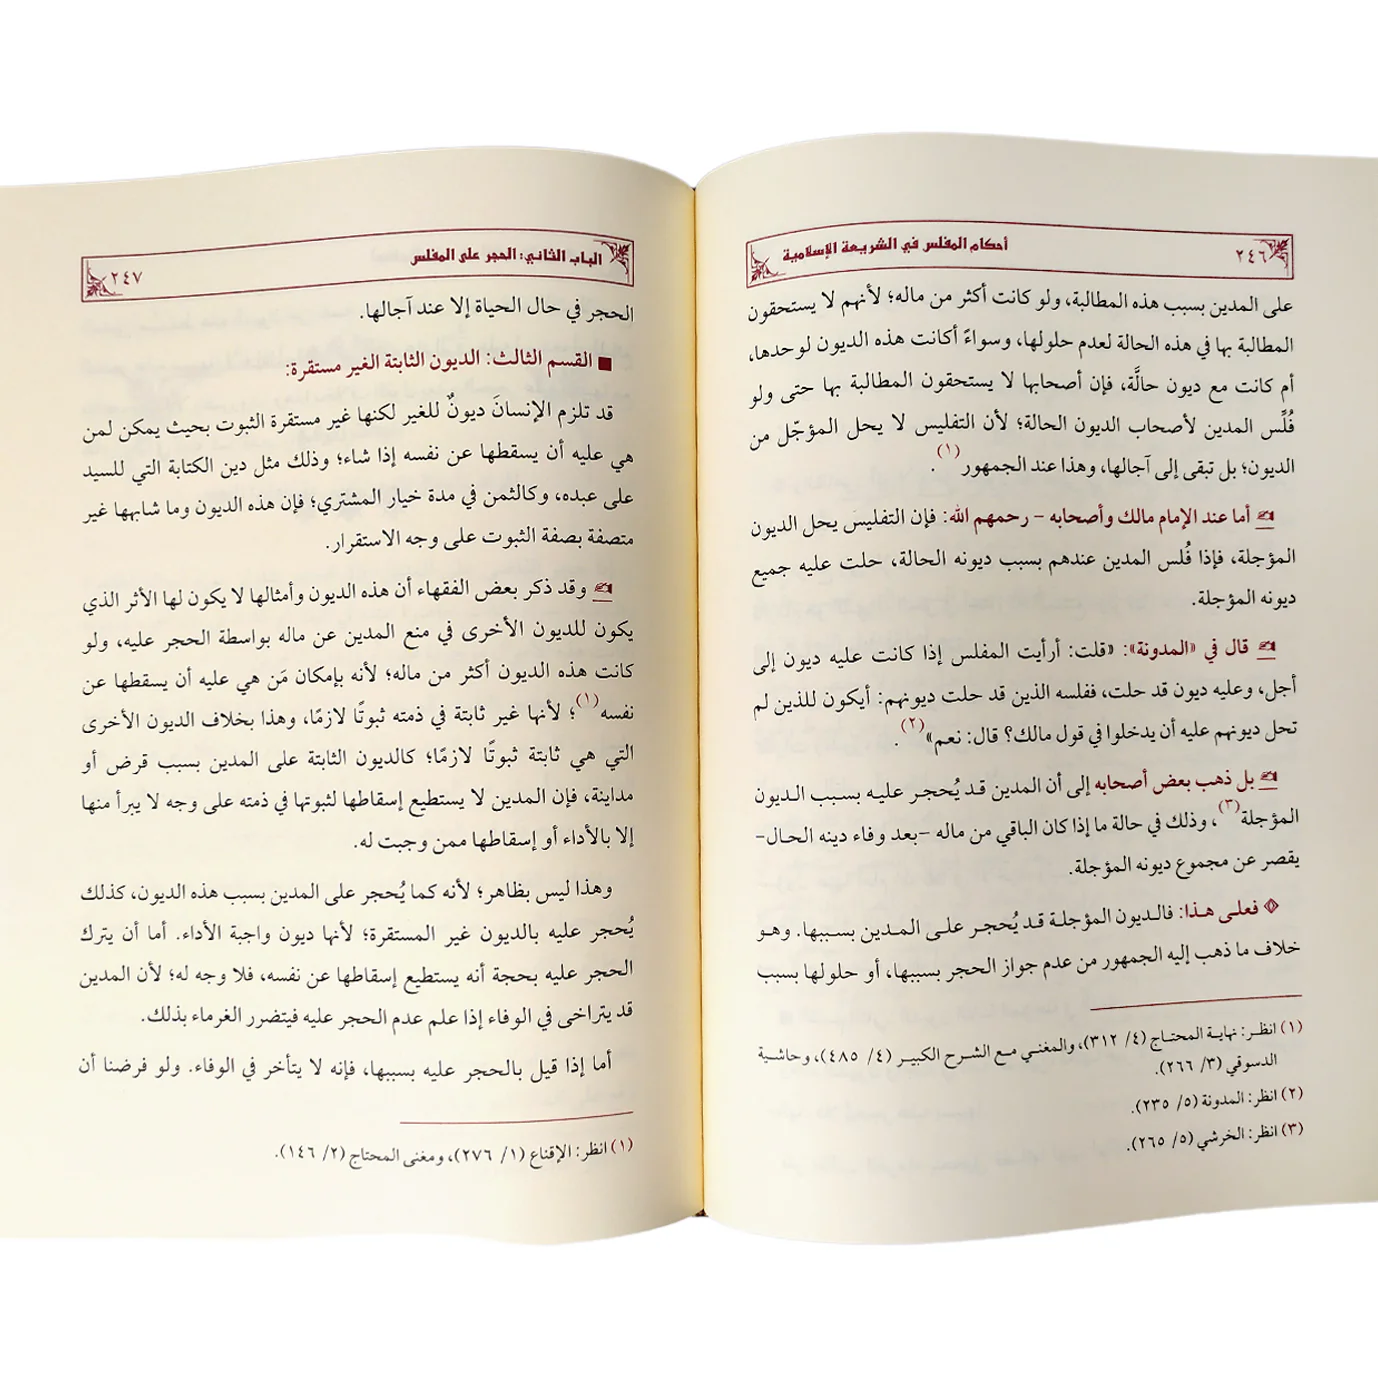 ٢٤٦ أحكام المفلس في الشريعة الإسلامية
على المدين بسبب هذه المطالبة، ولو كانت أكثر من ماله؛ لأنهم لا يستحقون
المطالبة بها في هذه الحالة لعدم حلولها، وسواءً أكانت هذه الديون لوحدها،
أم كانت مع ديون حالَّة، فإن أصحابها لا يستحقون المطالبة بها حتى ولو
فُلِّس المدين لأصحاب الديون الحالة؛ لأن التفليس لا يحل المؤجّل من
الديون؛ بل تبقى إلى آجالها، وهذا عند الجمهور(١).
أما عند الإمام مالك وأصحابه - رحمهم الله: فإن التفليس يحل الديون
المؤجلة، فإذا فُلس المدين عندهم بسبب ديونه الحالة، حلت عليه جميع
ديونه المؤجلة.
قال في «المدونة»: «قلت: أرأيت المفلس إذا كانت عليه ديون إلى
أجل، وعليه ديون قد حلت، ففلسه الذين قد حلت ديونهم: أيكون للذين لم
تحل ديونهم عليه أن يدخلوا في قول مالك؟ قال: نعم»(٢).
بل ذهب بعض أصحابه إلى أن المدين قد يُحجر عليه بسبب الديون
المؤجلة(٣)، وذلك في حالة ما إذا كان الباقي من ماله -بعد وفاء دينه الحال-
يقصر عن مجموع ديونه المؤجلة.
فعلى هذا: فالديون المؤجلة قد يُحجر على المدين بسببها. وهو
خلاف ما ذهب إليه الجمهور من عدم جواز الحجر بسببها، أو حلولها بسبب
(١) انظر: نهاية المحتاج (٤/ ٣١٢)، والمغني مع الشرح الكبير (٤/ ٤٨٥)، وحاشية
الدسوقي (٣/ ٢٦٦).
(٢) انظر: المدونة (٥/ ٢٣٥).
(٣) انظر: الخرشي (٥/ ٢٦٥).
الباب الثاني: الحجر على المفلس ٢٤٧
الحجر في حال الحياة إلا عند آجالها.
■ القسم الثالث: الديون الثابتة الغير مستقرة:
قد تلزم الإنسانَ ديونٌ للغير لكنها غير مستقرة الثبوت بحيث يمكن لمن
هي عليه أن يسقطها عن نفسه إذا شاء؛ وذلك مثل دين الكتابة التي للسيد
على عبده، وكالثمن في مدة خيار المشتري؛ فإن هذه الديون وما شابهها غير
متصفة بصفة الثبوت على وجه الاستقرار.
وقد ذكر بعض الفقهاء أن هذه الديون وأمثالها لا يكون لها الأثر الذي
يكون للديون الأخرى في منع المدين عن ماله بواسطة الحجر عليه، ولو
كانت هذه الديون أكثر من ماله؛ لأنه بإمكان مَن هي عليه أن يسقطها عن
نفسه(١)؛ لأنها غير ثابتة في ذمته ثبوتًا لازمًا، وهذا بخلاف الديون الأخرى
التي هي ثابتة ثبوتًا لازمًا؛ كالديون الثابتة على المدين بسبب قرض أو
مداينة، فإن المدين لا يستطيع إسقاطها لثبوتها في ذمته على وجه لا يبرأ منها
إلا بالأداء أو إسقاطها ممن وجبت له.
وهذا ليس بظاهر؛ لأنه كما يُحجر على المدين بسبب هذه الديون، كذلك
يُحجر عليه بالديون غير المستقرة؛ لأنها ديون واجبة الأداء. أما أن يترك
الحجر عليه بحجة أنه يستطيع إسقاطها عن نفسه، فلا وجه له؛ لأن المدين
قد يتراخى في الوفاء إذا علم عدم الحجر عليه فيتضرر الغرماء بذلك.
أما إذا قيل بالحجر عليه بسببها، فإنه لا يتأخر في الوفاء. ولو فرضنا أن
(١) انظر: الإقناع (١/ ٢٧٦)، ومغنى المحتاج (٢/ ١٤٦).